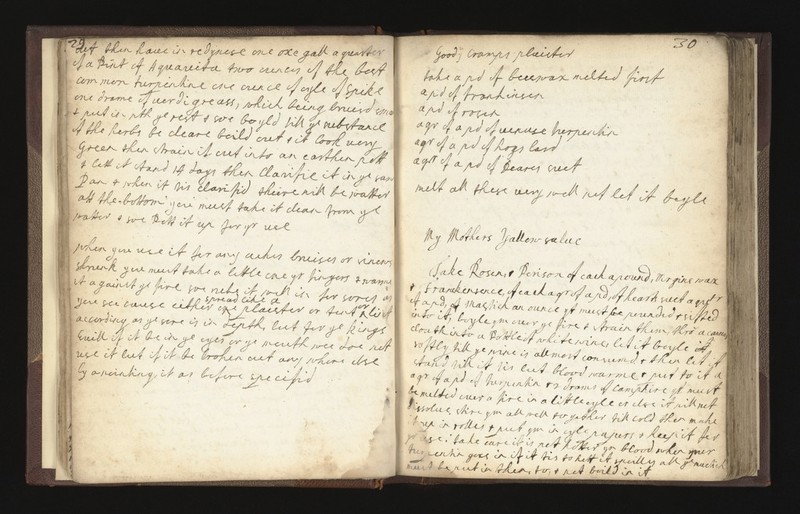 29
let then have in redynese one oxe gall a quarter
of a Pint of Aquavita two ounces of the best
common turpintine one ounce of oyle of Spike
one drame of verdigreass, which being bruisd
& put in with ye rest & soe boyld till ye substance
of the herbs be cleare boild out & it look very
Green then strain it out into an earthen pott
& lett it stand 14 days then clarifie it in ye same
Pan & when it tis clarifid theire will be watter
att the bottom you must take it clean from ye
watter & soe Pott it up for yr use
When you use it for any aches bruises or sinews
shrunk you must take a little on yr fingers & warme
it against ye fire soe rube it well in for sores as
you see cause either spread like a plaister or tent or
according as ye sore is in depth, but for ye kings
Euill if it be in ye eyes or ye mouth wee doe not
use it but if it be broken out any where else
by anointing it as before specifid
30
Good Cramps plaister
take a pd of beeswax melted first
a pd of frankinsen
a pd of rosen
a qr of a pd of venuse turpentin
a qr of a pd of hogs lard
a qr of a pd of Deares suet
melt all these very well not let it boyle
My Mothers Yallow salve
Take Rosen, & Perrosen of each a pound, Virgins wax
& frankensence, of each a qr of a pd, of harts suet a qr
of a pd, of Mastick an ounce yt must be pounded & sifted
into it, boyle ym over ye fire & strain them thro a
cloath into a Pottle of white wine, let it boyle
softly till ye wine is all most consumed & then let it
stand till it tis but blood warme & put to it a
qr of a pd of turpentin & 3 drams of camphire yt must
be melted over a fire in a little oyle or else it will not
dissolve, stir ym all well together till cold then make
it up in rolles & put ym in oyle papers & keep it for
yr use: take care it is not hotter yn blood when your
turpentin goes in
must be put in then too, & not boild in it